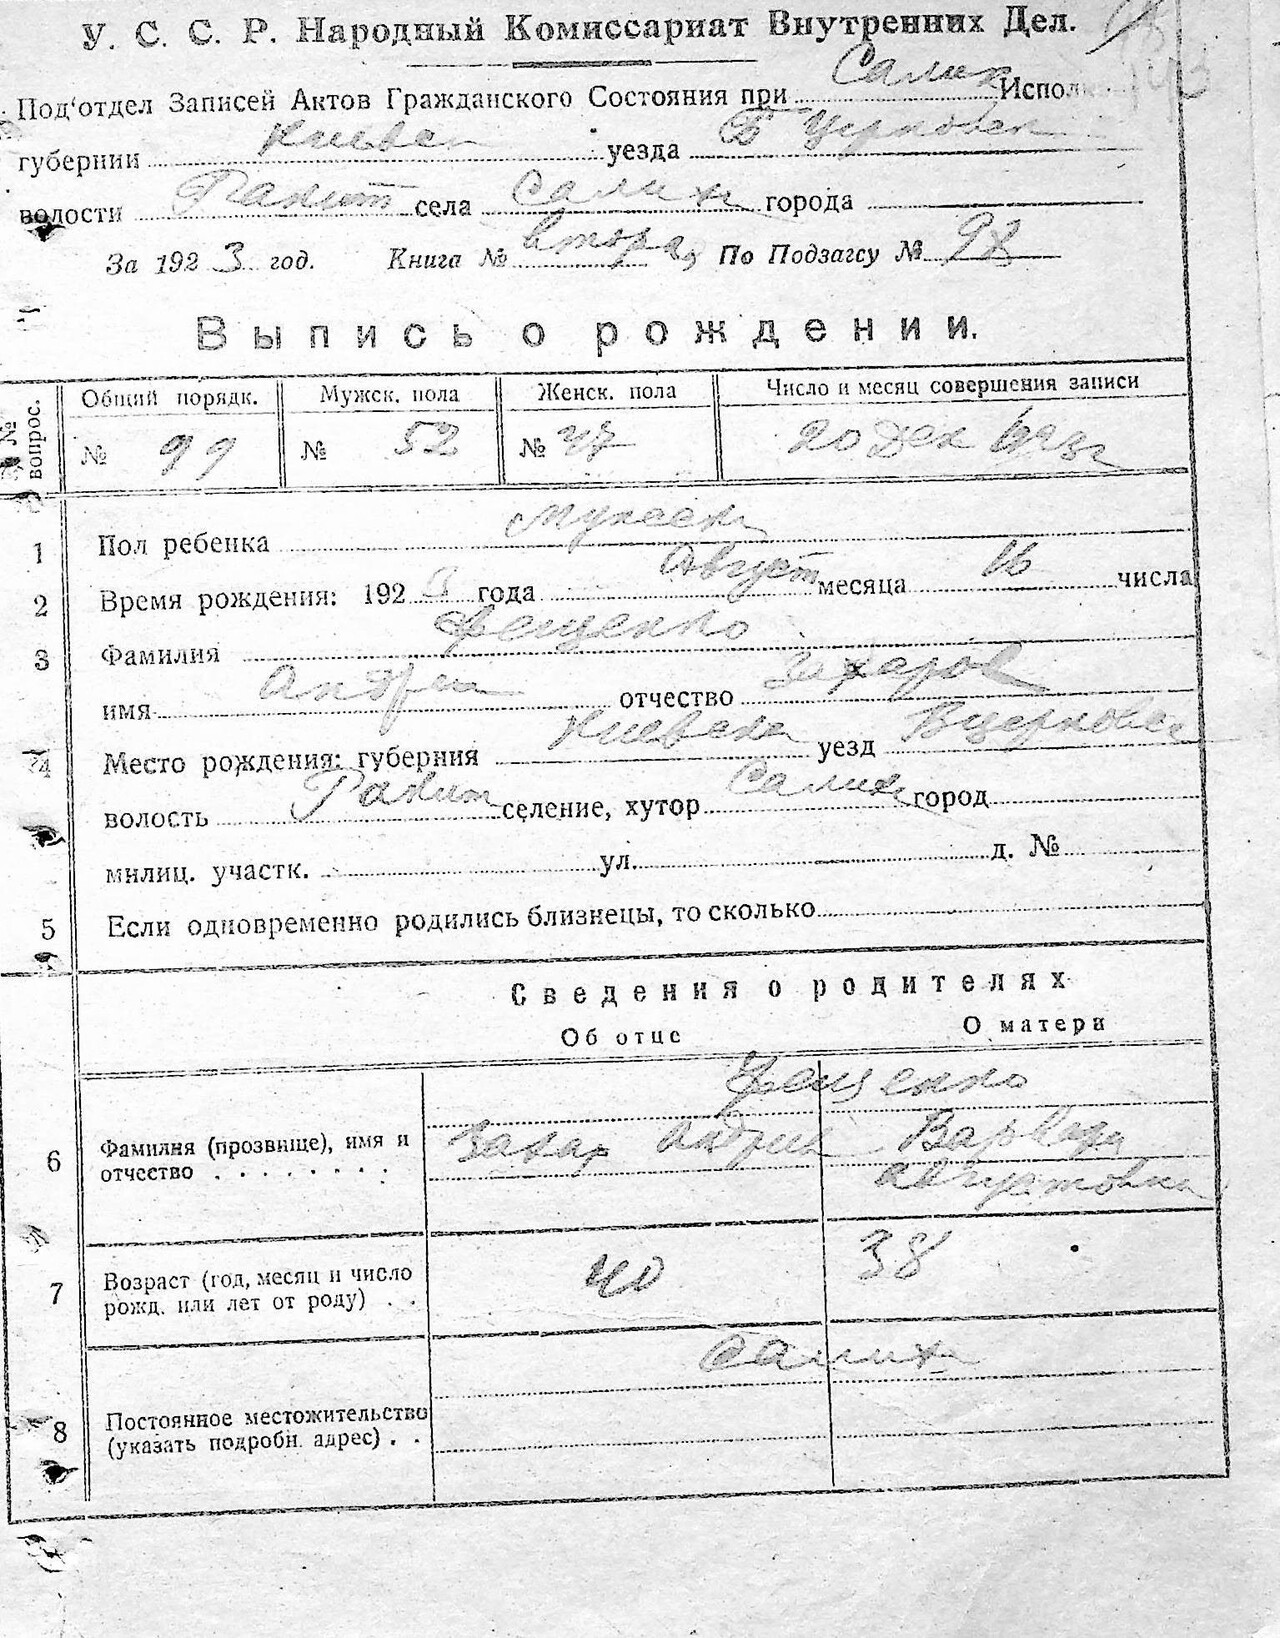 У. С. С. Р. Народный Комиссариат Внутренних Дел.
Под'отдел Записей Актов Гражданского Состояния при Салих Испол
губернии Киевск уезда Б Церковск
волости Ракит села Салих города
За 1923 год. Книга № втора, По Подзагсу №
Выпись о рождении.
№ вопрос. Общий порядк. Мужск. пола Женск. пола Число и месяц совершения записи
№ 99 № 52 № 47 20 дек 1923 г
1 Пол ребенка мужеск
2 Время рождения: 1923 года Август месяца 16 числа
3 Фамилия Фещенко
имя Андрей отчество Захаров
4 Место рождения: губерния Киевска уезд Бцерковск
волость Ракит селение, хутор Салих город
милиц. участк. ул. д. №
5 Если одновременно родились близнецы, то сколько
Сведения о родителях
Об отце О матери
Фещенко
6 Фамилия (прозвище), имя и отчество Захар Андрии Варвара
Августовна
7 Возраст (год, месяц и число рожд. или лет от роду) 40 38
Салиха
8 Постоянное местожительство
(указать подробн. адрес)